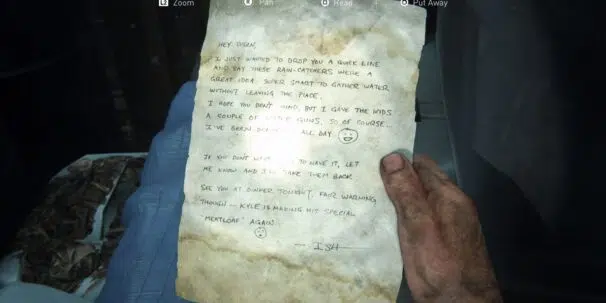 Zoom Pan Read Put Away
HEY SUSAN,
I JUST WANTED TO DROP YOU A QUICK LINE
AND SAY THESE RAIN-CATCHERS WERE A
GREAT IDEA. SUPER SMART TO GATHER WATER
WITHOUT LEAVING THE PLACE.
I HOPE YOU DON'T MIND, BUT I GAVE THE KIDS
A COUPLE OF WATER GUNS, SO OF COURSE...
I'VE BEEN ALL DAY
IF YOU DON'T TO HAVE IT, LET
ME KNOW AND I'LL TAKE THEM BACK
SEE YOU AT DINNER TONIGHT. FAIR WARNING
THOUGH - KYLE IS MAKING HIS SPECIAL
"MEATLOAF" AGAIN
- ISH